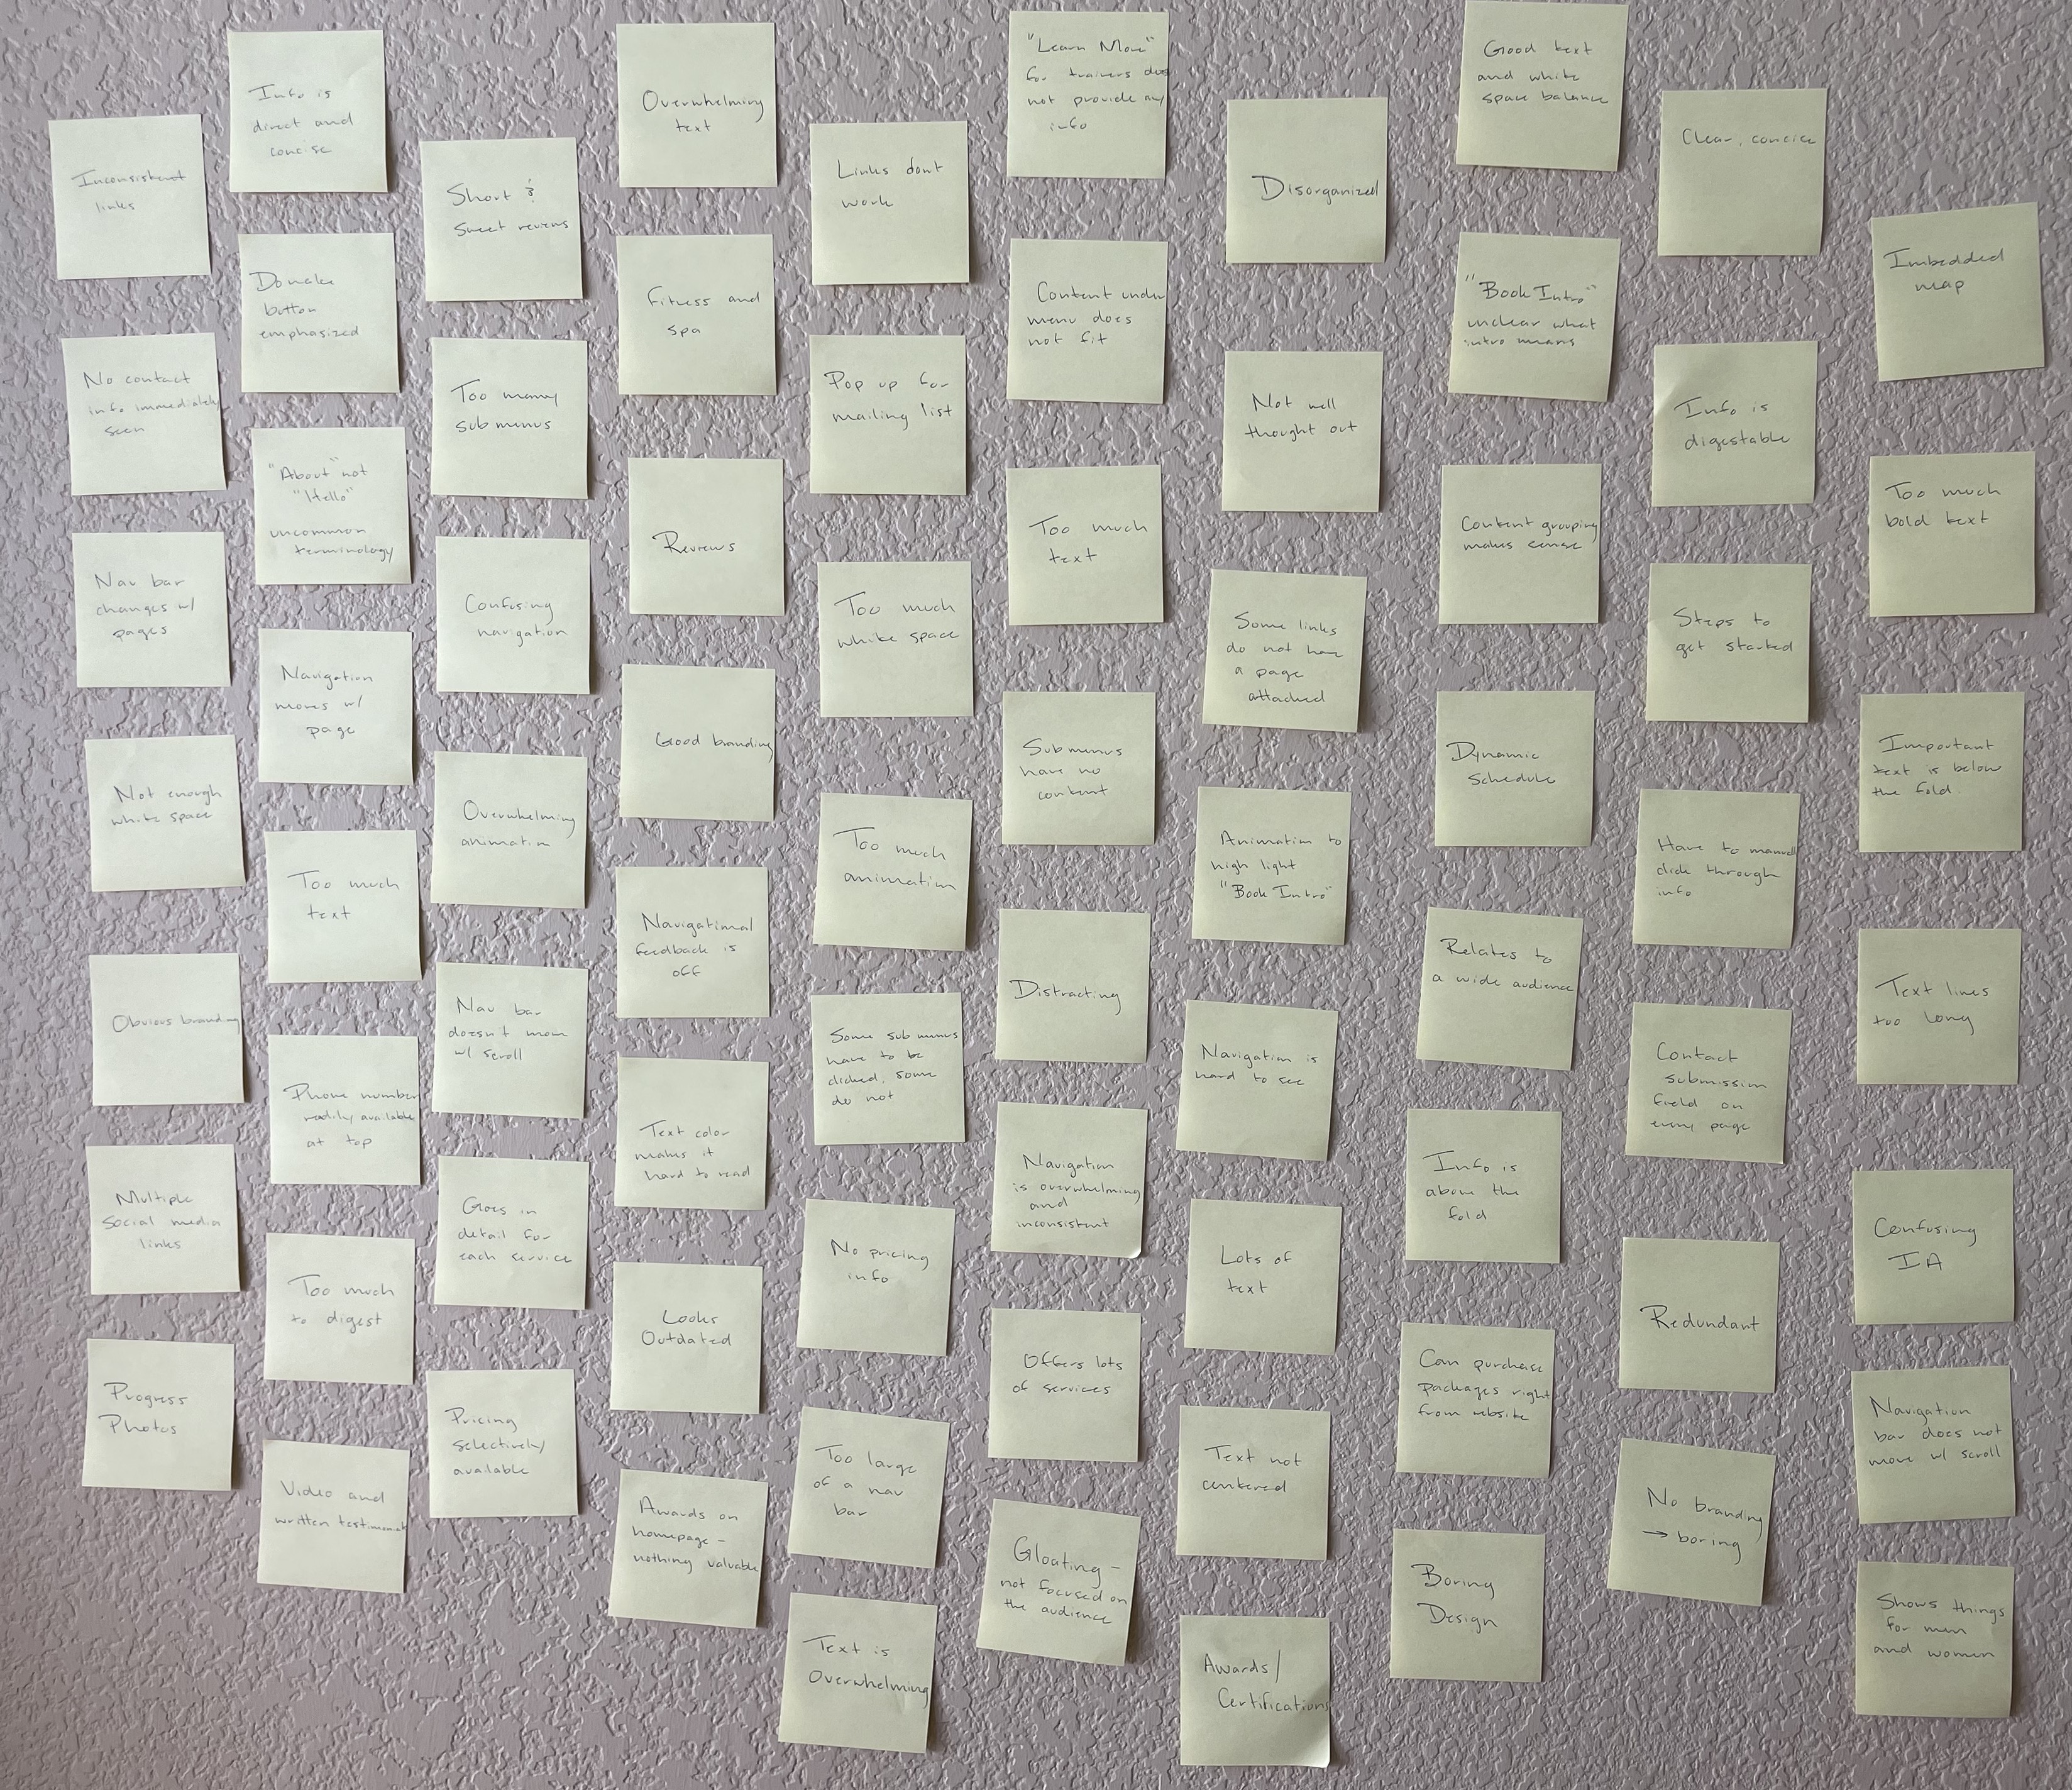 Inconsistent
links
No contact
info immediately
seen
Nav bar
changes w/
pages
Not enough
white space
Obvious branding
Multiple
Social media
links
Progress
Photos
Info is
direct and
concise
Donate
button
emphasized
"About" not
"Hello"
uncommon
terminology
Navigation
moves w/
page
Too much
text
Phone number
readily available
at top
Too much
to digest
Video and
written testimonials
Short &
Sweet reviews
Too many
submenus
Confusing
navigation
Overwhelming
animation
Nav bar
doesn't move
w/ scroll
Goes in
detail for
each service
Pricing
selectively
available
Overwhelming
text
Fitness and
spa
Reviews
Good branding
Navigational
feedback is
off
Text color
makes it
hard to read
Looks
Outdated
Awards on
homepage -
nothing valuable
Links dont
work
Pop up for
mailing list
Too much
white space
Too much
animation
Some submenus
have to be
clicked, some
do not
No pricing
info
Too large
of a nav
bar
Text is
Overwhelming
"Learn More"
for trainers does
not provide any
info
Content under
menu does
not fit
Too much
text
Submenus
have no
content
Distracting
Navigation
is overwhelming
and
inconsistent
Offers lots
of services
Gloating -
not focused on
the audience
Disorganized
Not well
thought out
Some links
do not have
a page
attached
Animation to
high light
"Book Intro"
Navigation is
hard to see
Lots of
text
Text not
centered
Awards/
Certifications
Good text
and white
space balance
"Book Intro"
unclear what
intro means
Content grouping
makes sense
Dynamic
Schedule
Relates to
a wide audience
Info is
above the
fold
Can purchase
packages right
from website
Boring
Design
Clear, concise
Info is
digestable
Steps to
get started
Have to manually
click through
info
Contact
submission
field on
every page
Redundant
No branding
→ boring
Imbedded
map
Too much
bold text
Important
text is below
the fold.
Text lines
too long
Confusing
IA
Navigation
bar does not
move w/ scroll
Shows things
for men
and women